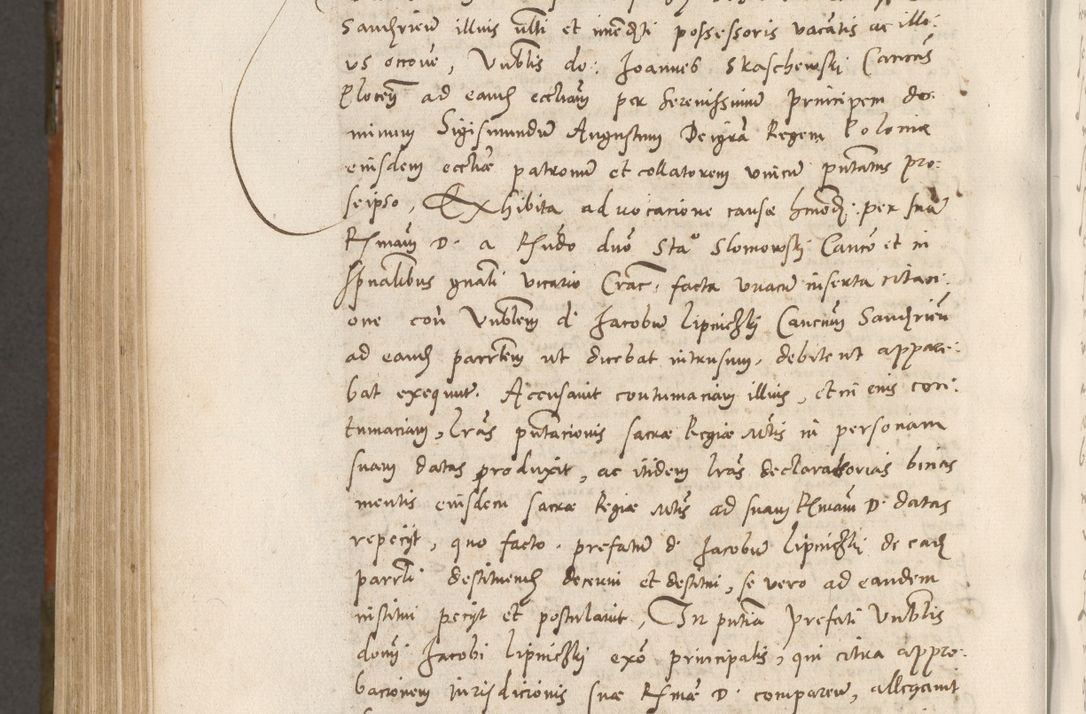 Sandzirien illius ulti et immediati possessoris vacatis ac illi:
us ottove, Vnblis do: Joannes Skaschewskj Canonicus
Plocen ad eand eccliam per Serenissimu principem do:
minum Sigismundu Augustum Dei gra Regem Poloniae
eiusdem eccliae patronu et collatorem unicu pntatus pro:
seipso, Exhibita advocacione causae hmodj per sua
Rsmam D. a Rsndo duo Stao Slomowskj Canco et in
spualibus gnali vicario Crac. facta unacu inserta citaci:
one con Vnblem d. Jacobu Lipnickj Cancum Sandzirien
ad eand parrtem ut dicebat intrusum, debite ut appare:
bat exequut. Accusavit contumaciam illius, et in eius con:
tumaciam, lras pntacionis sacrae Regiae Mtis in personam
suam datas produxit, ac itidem lras declaratorias binas
mentis eiusdem sacrae Regiae Mtis ad suam Rsmam D. datas
repecyt, quo facto. prefatum d. Jacobum Lipnickj de ead
parrli destituend decerni et destitui, se vero ad eandem
institui pecyt et postulavit, In pntia prefati Vnblis
domj Jacobi Lipnickj exo principalis, qui citra appro:
bacionem iurisdicionis suae Rsmae D. comparen, allegavit